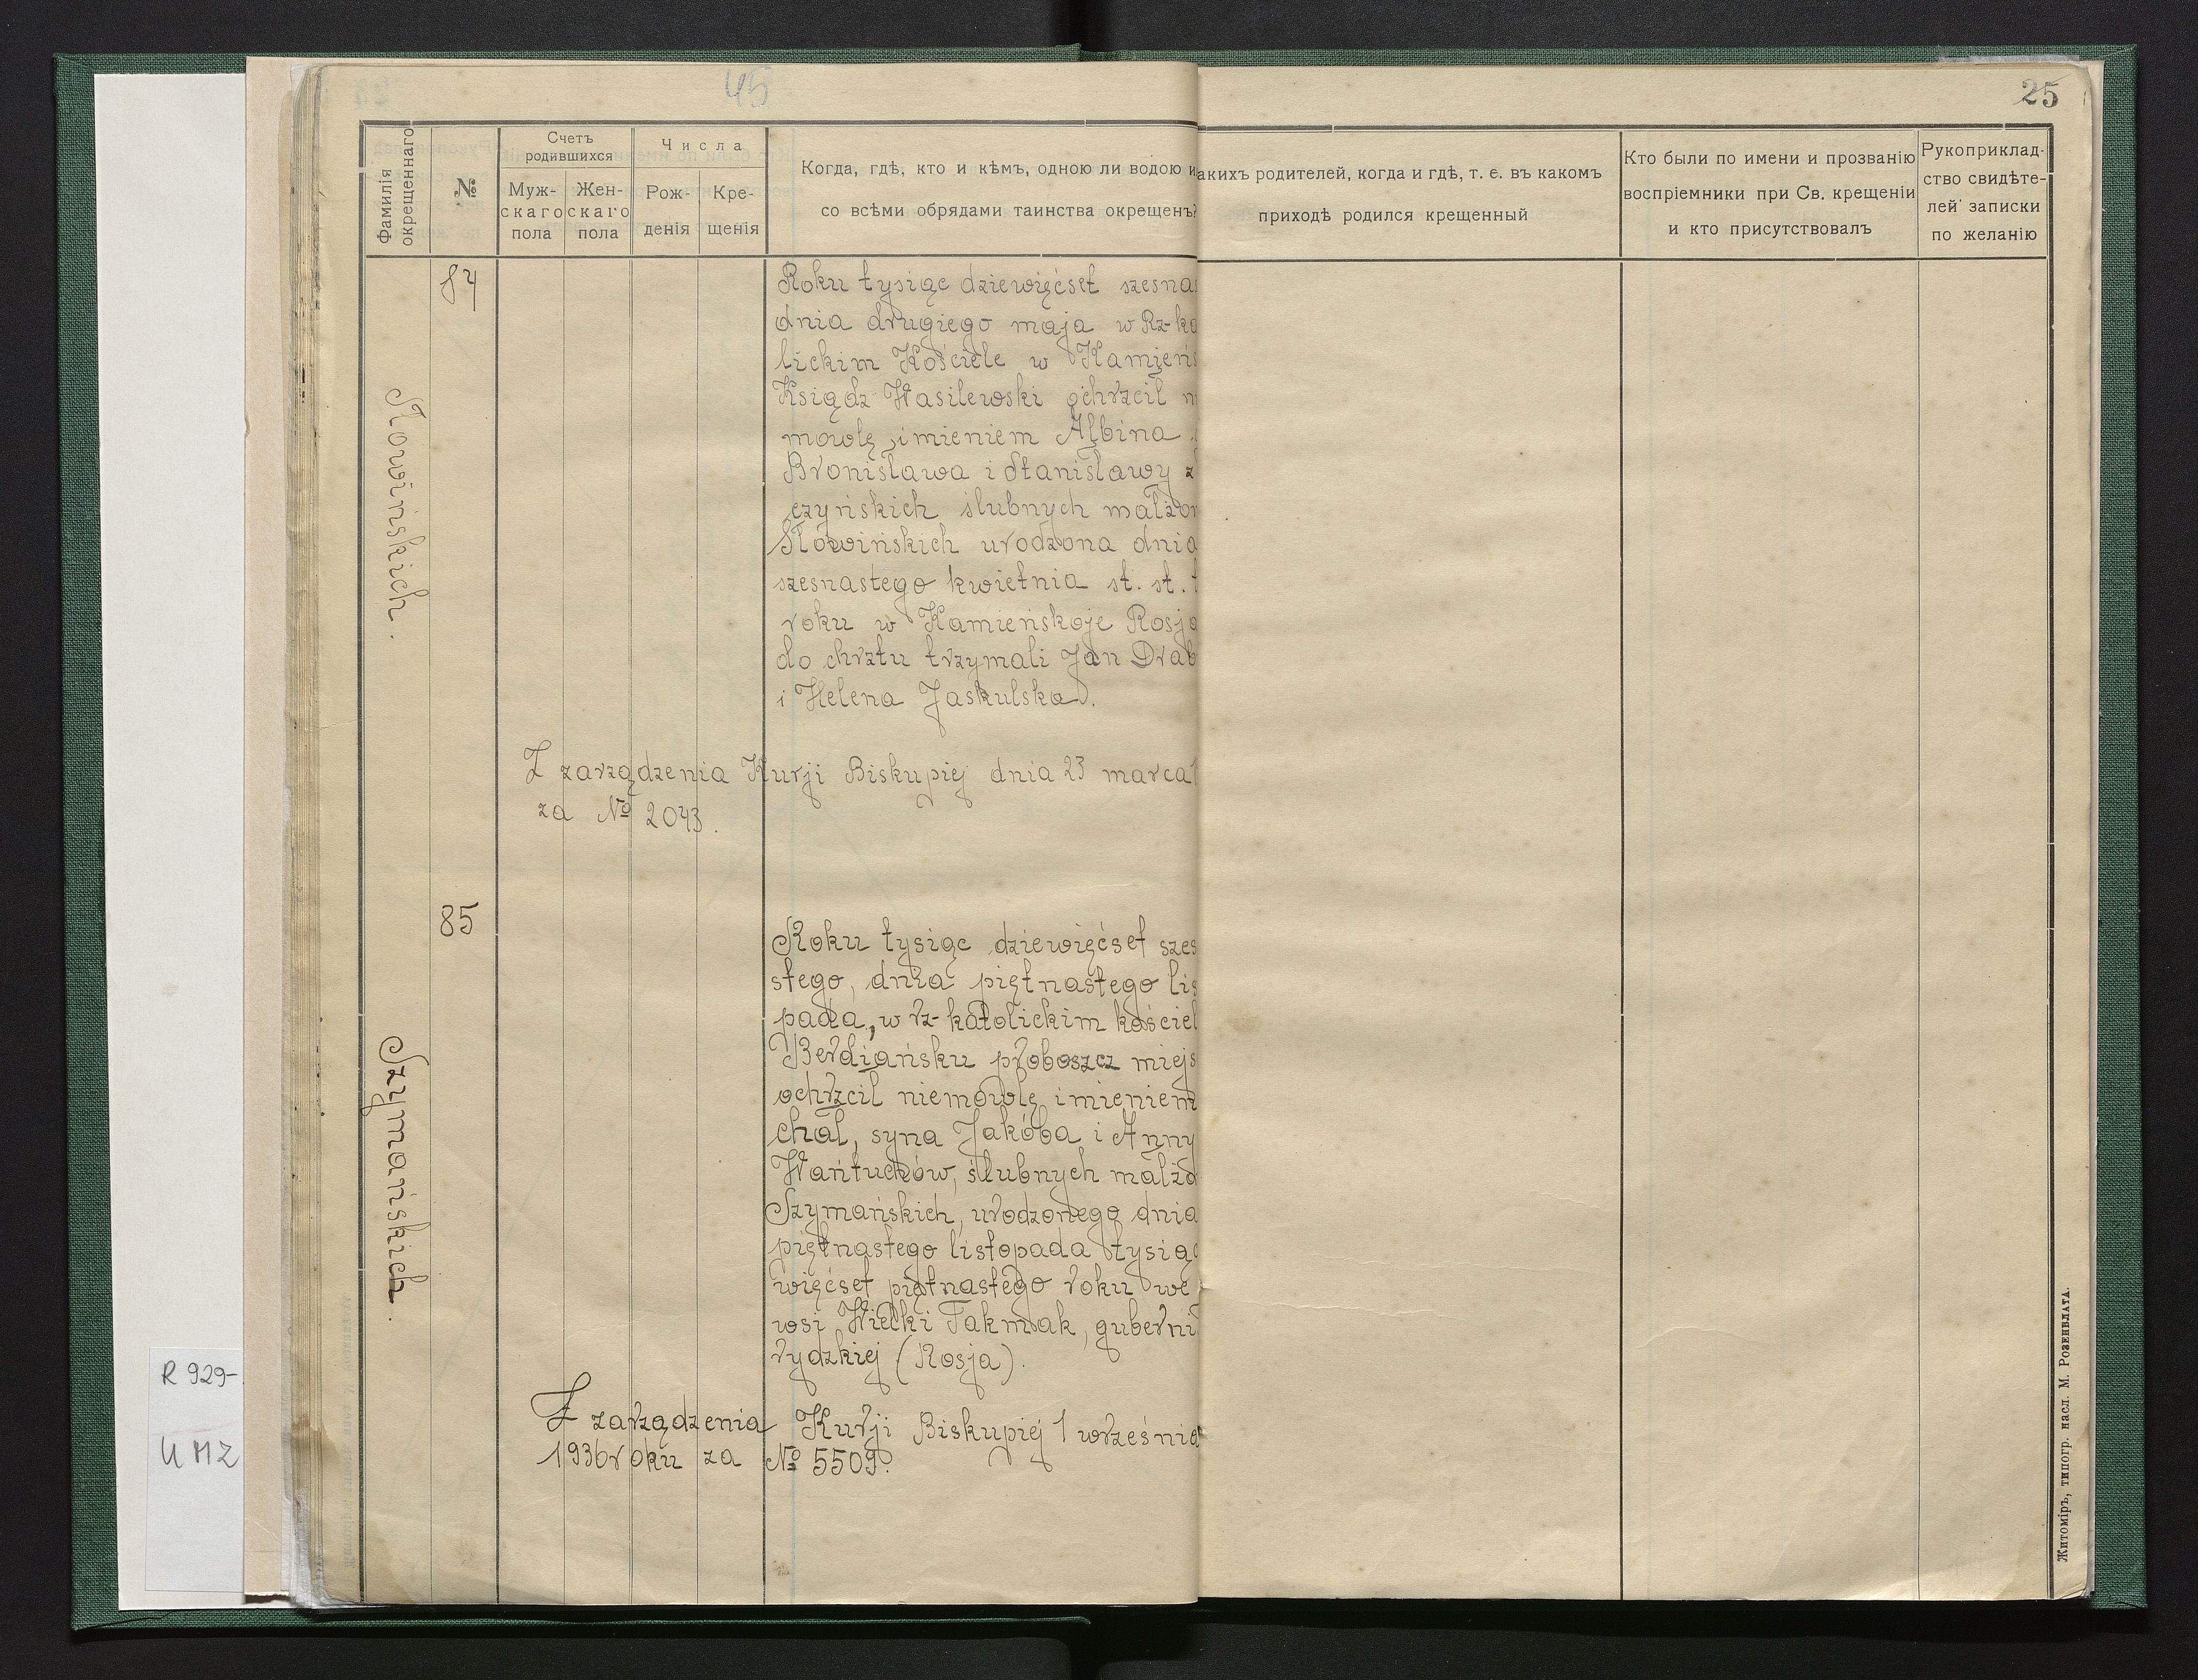 45
25
Фамилія окрещеннаго
№
Счетъ родившихся
Муж-скаго пола
Жен-скаго пола
Числа
Рож-денія
Кре-щенія
Когда, гдѣ, кто и кѣмъ, одною ли водою и
со всѣми обрядами таинства окрещенъ?
акихъ родителей, когда и гдѣ, т. е. въ какомъ
приходѣ родился крещенный
Кто были по имени и прозванію
воспріемники при Св. крещеніи
и кто присутствовалъ
Рукоприклад-
ство свидѣте-
лей записки
по желанію
84
Słowińskich.
Roku tysiąc dziewięćset szesna
dnia drugiego maja w Rz-ka
lickim Kościele w Kamieńs
Ksiądz Wasilewski ochrzcił n
mowlę imieniem Albina
Bronisława i Stanisławy z
czyńskich ślubnych małżon
Słowińskich urodzona dnia
szesnastego kwietnia st. st. t
roku w Kamieńskoje Rosja
do chrztu trzymali Jan Drab
i Helena Jaskulska.
Z zarządzenia Kurji Biskupiej dnia 23 marca 1
za № 2043.
85
Szymańskich.
Roku tysiąc dziewięćset szes
stego, dnia piętnastego lis
pada, w rz-katolickim kościel
Berdiańsku proboszcz miejs
ochrzcił niemowlę imieniem
chał, syna Jakóba i Anny
Wańtuchów, ślubnych małżo
Szymańskich, urodzonego dnia
piętnastego listopada tysiąc
więćset piętnastego roku we
wsi Wielki Takmak, guberni
rydzkiej (Rosja).
Z zarządzenia Kurji Biskupiej 1 września
1936 roku za № 5509.
R 929-
UMZ
Житомiръ, типогр. насл. М. Розенблата.